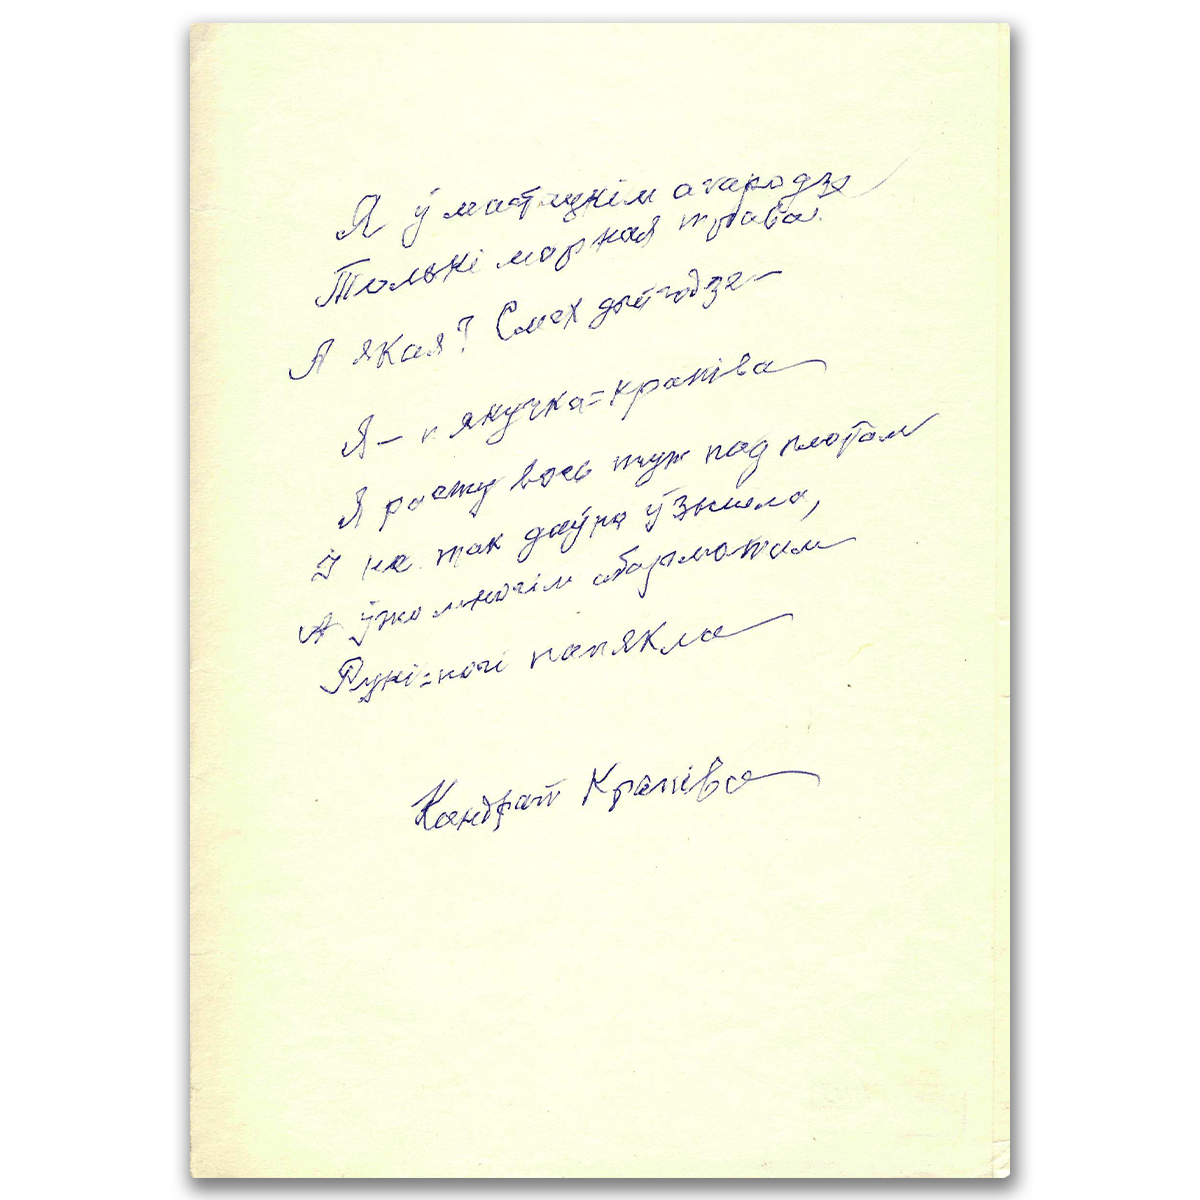 Я ў мастацкім агародзе
Толькі марная трава.
А якая? Смех дый годзе —
Я — пякучка=крапіва
Я расту вось тут пад плотам
І не так даўно ўзышла,
А ўжо многім абармотам
Рукі=ногі папякла
Кандрат Крапіва